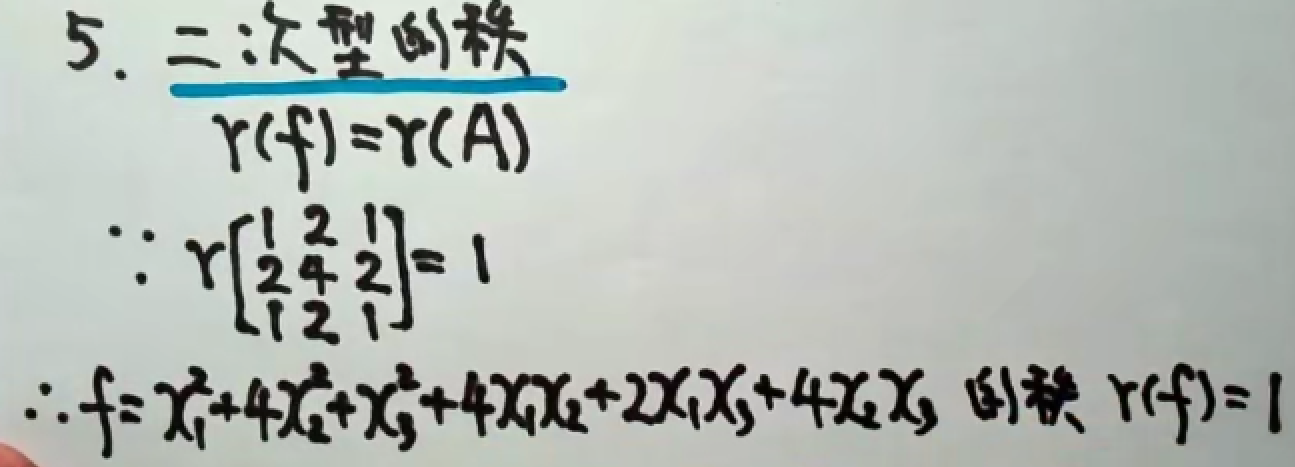 5. 二次型的秩
r(f)=r(A)
∵ r[1 2 1
2 4 2
1 2 1]=1
∴ f=x₁²+4x₂²+x₃²+4x₁x₂+2x₁x₃+4x₂x₃ 的秩 r(f)=1